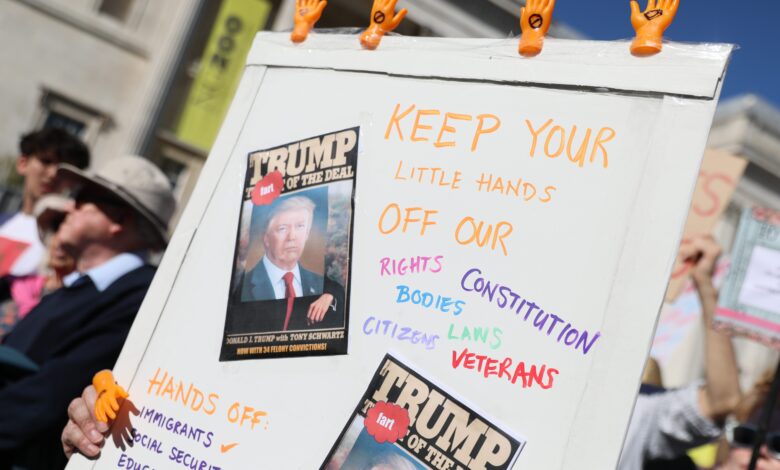 KEEP YOUR
LITTLE HANDS
OFF OUR
RIGHTS
CONSTITUTION
BODIES
CITIZENS
LAWS
VETERANS
TRUMP
fart
OF THE DEAL
DONALD J. TRUMP with TONY SCHWARTZ
NOW WITH 34 FELONY CONVICTIONS!
HANDS OFF:
IMMIGRANTS ✓
SOCIAL SECURITY
EDUC
TRUMP
fart
OF THE DEAL